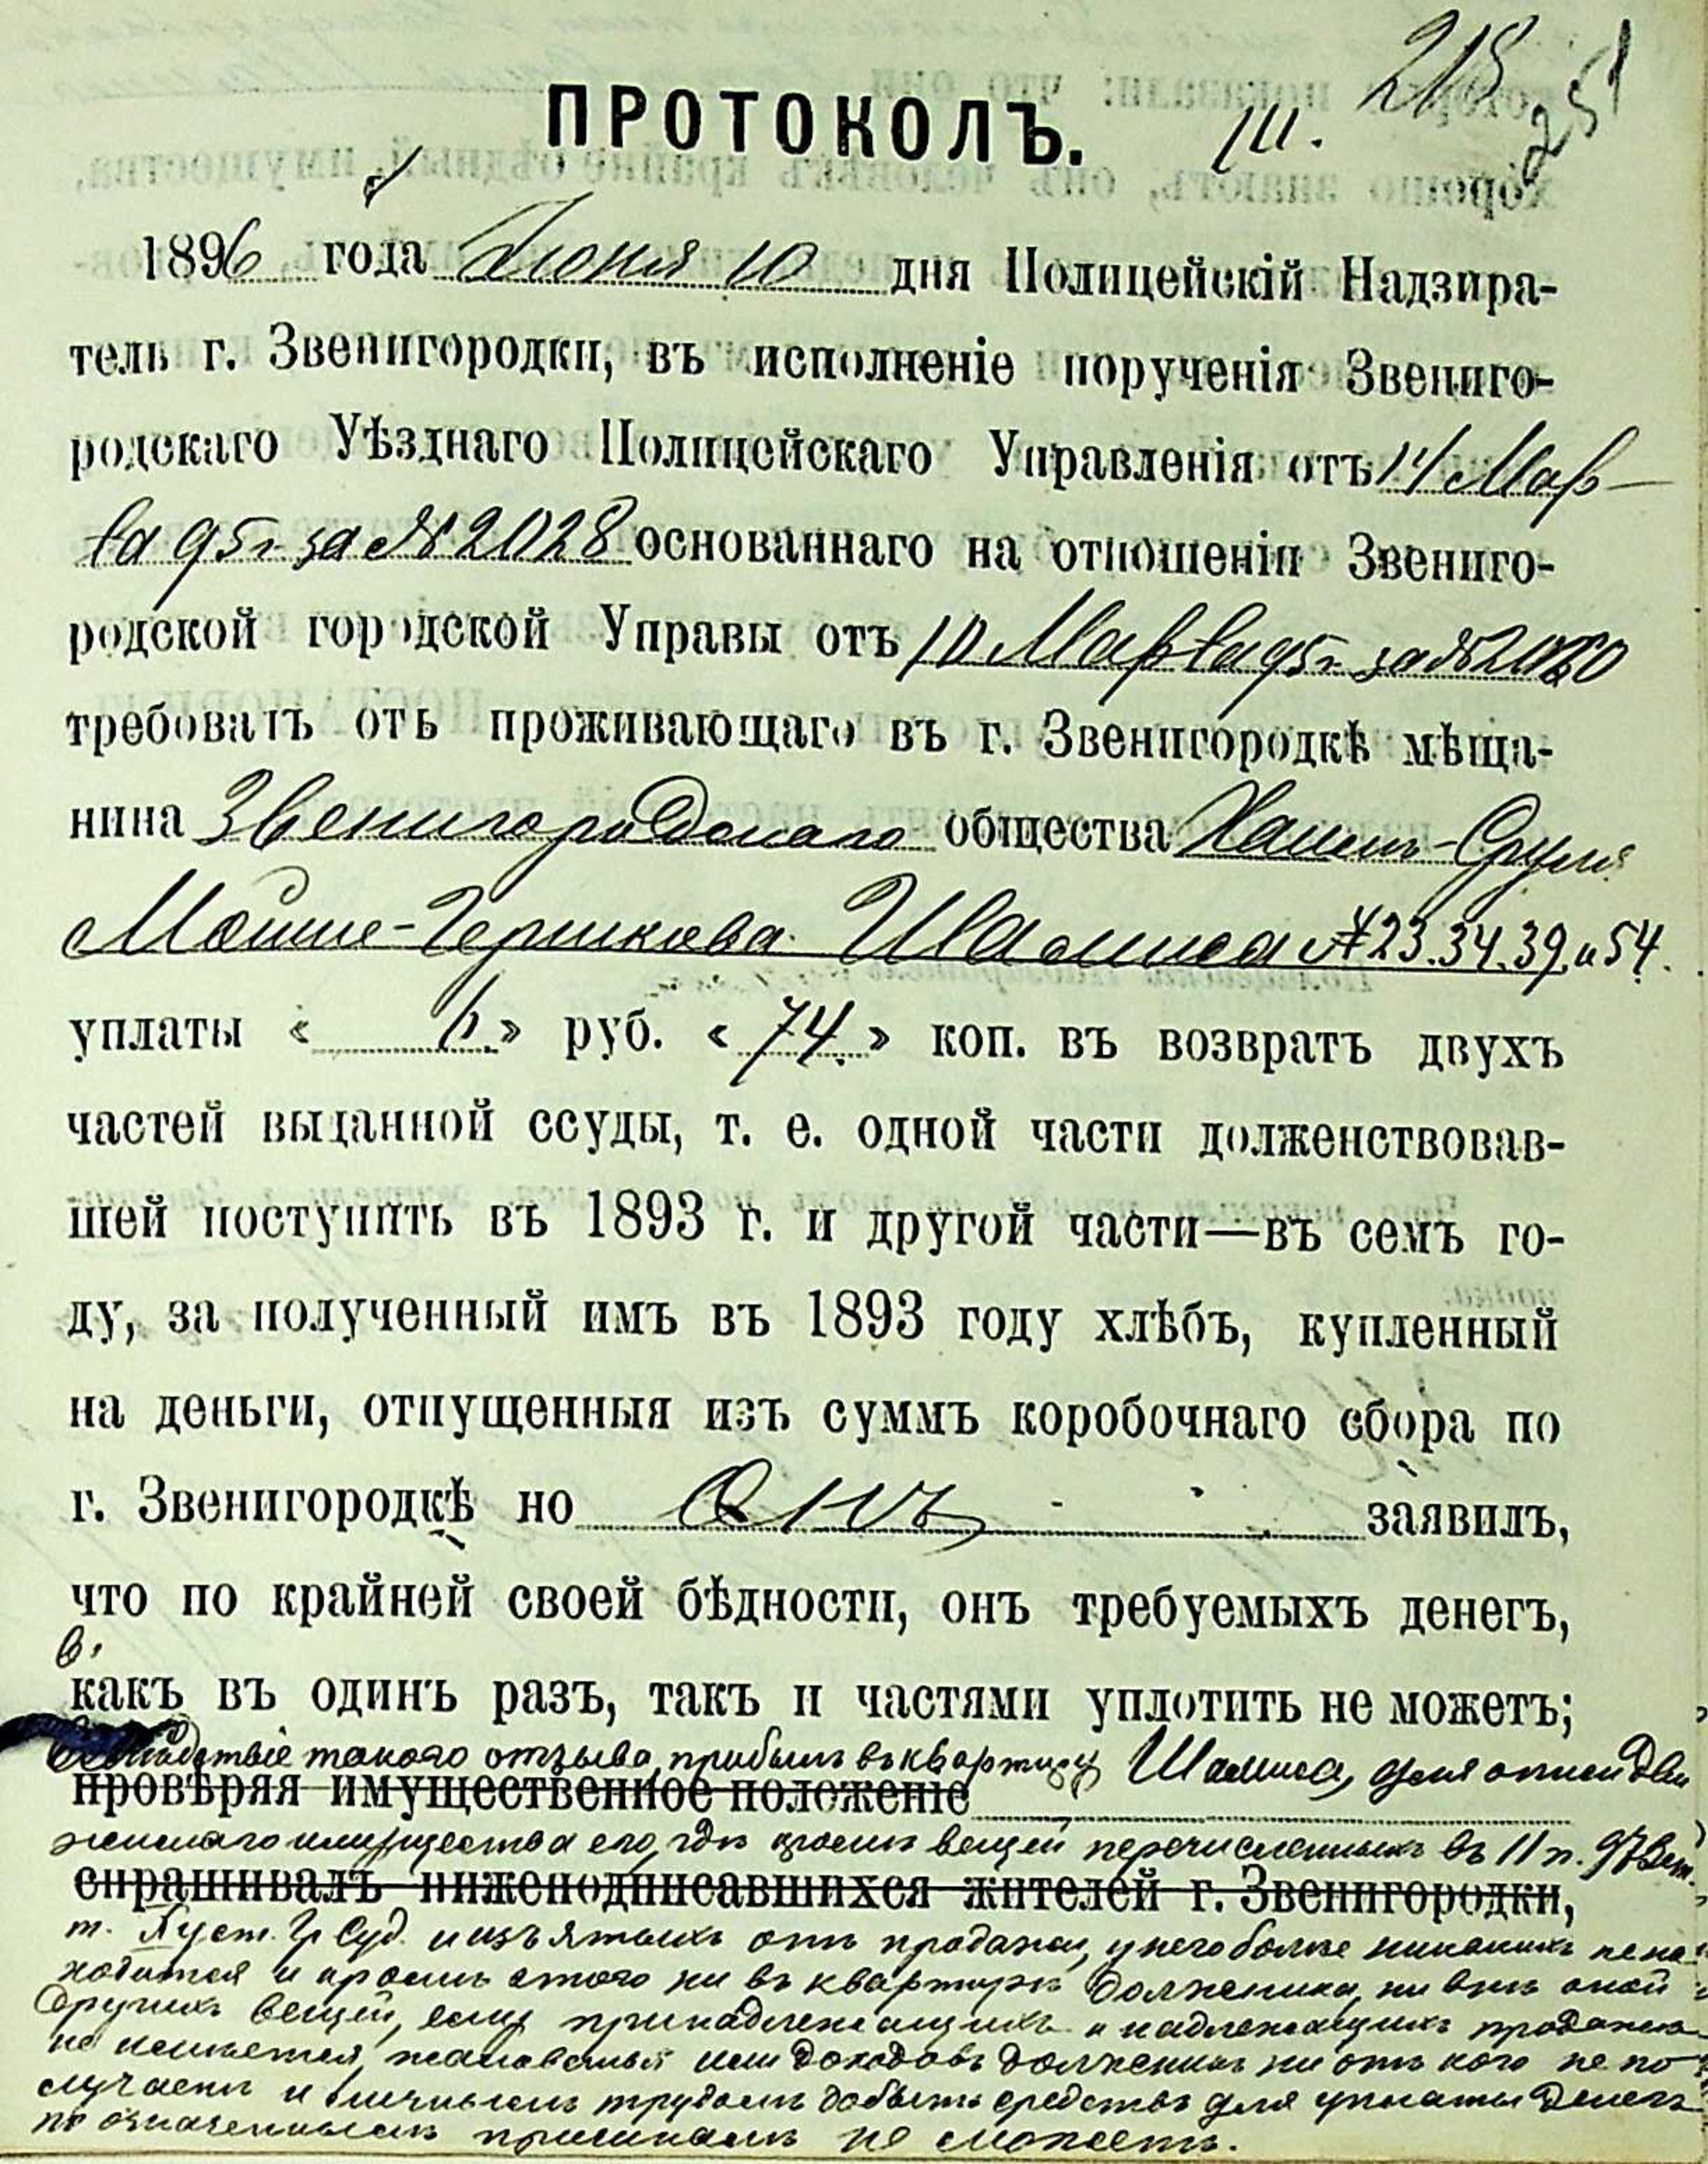 218
251
ПРОТОКОЛЪ. 111.
1896 года Июня 10 дня Полицейскій Надзира-
тель г. Звенигородки, въ исполненіе порученія Звениго-
родскаго Уѣзднаго Полицейскаго Управленія отъ 14 Мар-
та 95 г за № 2028 основаннаго на отношеніи Звениго-
родской городской Управы отъ 10 Марта 95 г. за №
требовалъ отъ проживающаго въ г. Звенигородкѣ мѣща-
нина Звенигородскаго общества Хаимъ-Сруля
Мойше-Гершкова Шамиса № 23. 34. 39. и 54.
уплаты « 6 » руб. « 74 » коп. въ возвратъ двухъ
частей выданной ссуды, т. е. одной части долженствовав-
шей поступить въ 1893 г. и другой части—въ семъ го-
ду, за полученный имъ въ 1893 году хлѣбъ, купленный
на деньги, отпущенныя изъ суммъ коробочнаго сбора по
г. Звенигородкѣ но Онъ заявилъ,
что по крайней своей бѣдности, онъ требуемыхъ денегъ,
какъ въ одинъ разъ, такъ и частями уплотить не можетъ;
Вслѣдствіе такого отзыва, прибылъ въ квартиру Шамиса, для описи дви
провѣряя имущественное положеніе
жимаго имущества его, гдѣ кромѣ вещей перечисленныхъ въ 11 п. 973 ст.
спрашивалъ нижеподписавшихся жителей г. Звенигородки,
т. Уст. Гр Суд. и изъятыхъ отъ продажи, у него болѣе никакихъ не на
ходится и кромѣ этого ни въ квартирѣ должника, ни внѣ оной
другихъ вещей, ему принадлежащихъ и надлежащихъ продажѣ
не имѣется, жалованья или доходовъ должникъ ни отъ кого не по
лучаетъ и личнымъ трудомъ добыть средствъ для уплаты денегъ
по означеннымъ причинамъ не можетъ.